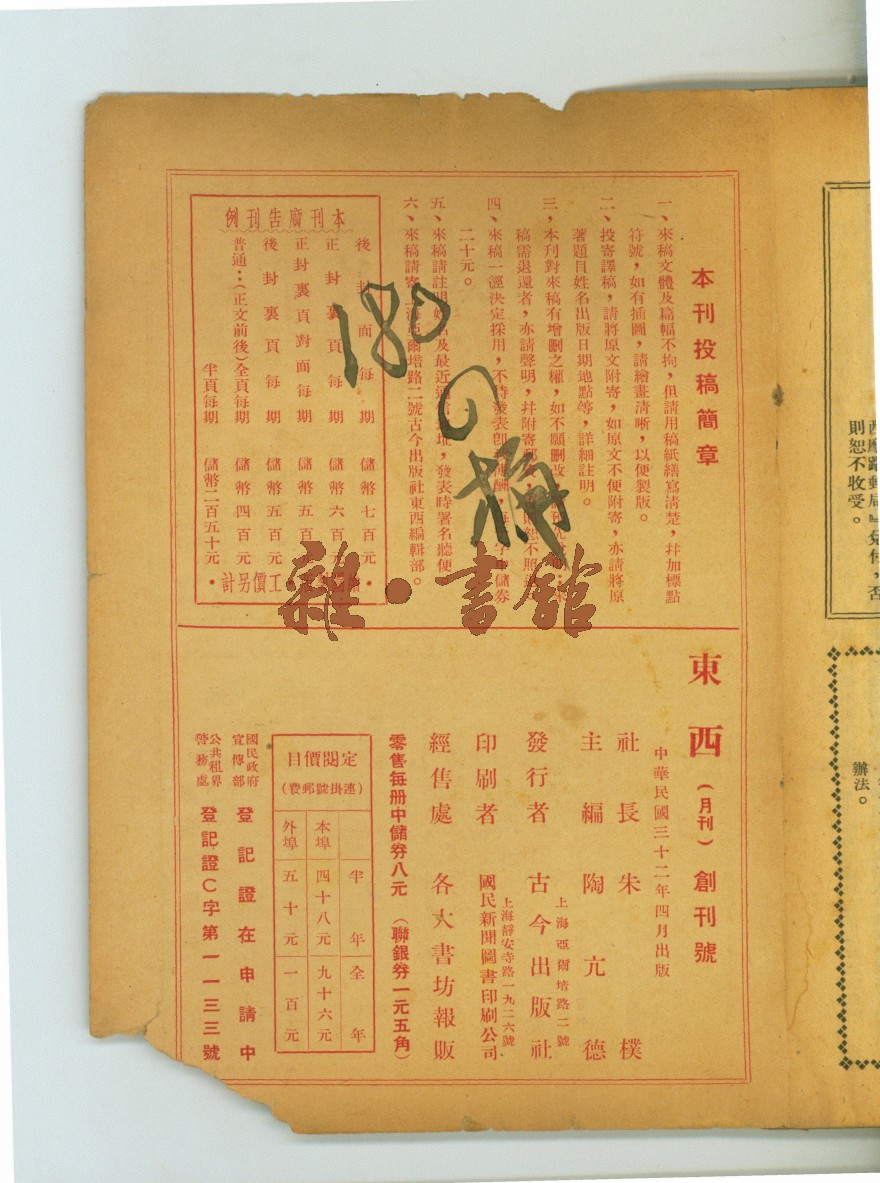 本刊投稿簡章
一、來稿文體及篇幅不拘，但請用稿紙繕寫清楚，幷加標點
符號，如有插圖，請繪畫清晰，以便製版。
二、投寄譯稿，請將原文附寄，如原文不便附寄，亦請將原
著題目姓名出版日期地點等，詳細註明。
三，本刊對來稿有增刪之權，如不願刪改
稿需退還者，亦請聲明，幷附寄郵 恕不照
四、來稿一經決定採用，不待發表卽 儲券
二十元。
五、來稿請註明姓名及最近通 址，發表時署名聽便
六、來稿請寄上海亞爾培路二號古今出版社東西編輯部。
本刊廣告刊例
後封面每期 儲幣七百元
正封裏頁每期 儲幣六百
正封裏頁對面每期 儲幣五百元
後封裏頁每期 儲幣五百元
普通：（正文前後）全頁每期 儲幣四百元
半頁每期 儲幣二百五十元
工價另計
180
梅
雜·書館
東西（月刊）創刊號
中華民國三十二年四月出版
社長 朱樸
主編 陶亢德
上海亞爾培路二號
發行者 古今出版社
上海靜安寺路一九二六號
印刷者 國民新聞圖書印刷公司
經售處 各大書坊報販
零售每冊中儲券八元（聯銀券一元五角）
定閱價目
（連掛號郵費）
半年 全年
本埠 四十八元 九十六元
外埠 五十元 一百元
國民政府宣傳部 登記證在申請中
公共租界警務處 登記證C字第一一三三號
則恕不收受。
辦法。